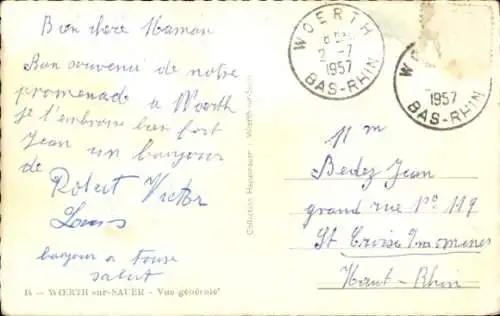 Bien chere Maman
Bon souvenir de notre
promenade a Woerth
je t'embrasse bien fort
Jean un bonjour
de
Robert Victor
Louis
bonjour a tous
salut
14 - WŒRTH-sur-SAUER - Vue générale
Collection Haguenauer - Woerth-sur-Sauer
WOERTH
2 -7
1957
BAS-RHIN
1957
BAS-RHIN
Mm
Bedez Jean
grand rue No 119
St Croix aux mines
Haut-Rhin